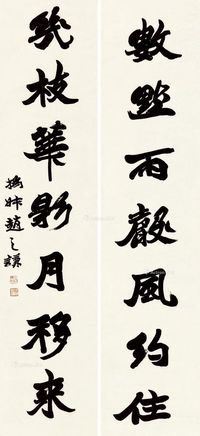 數點雨聲風約住
幾枝華影月移來
撝叔趙之謙